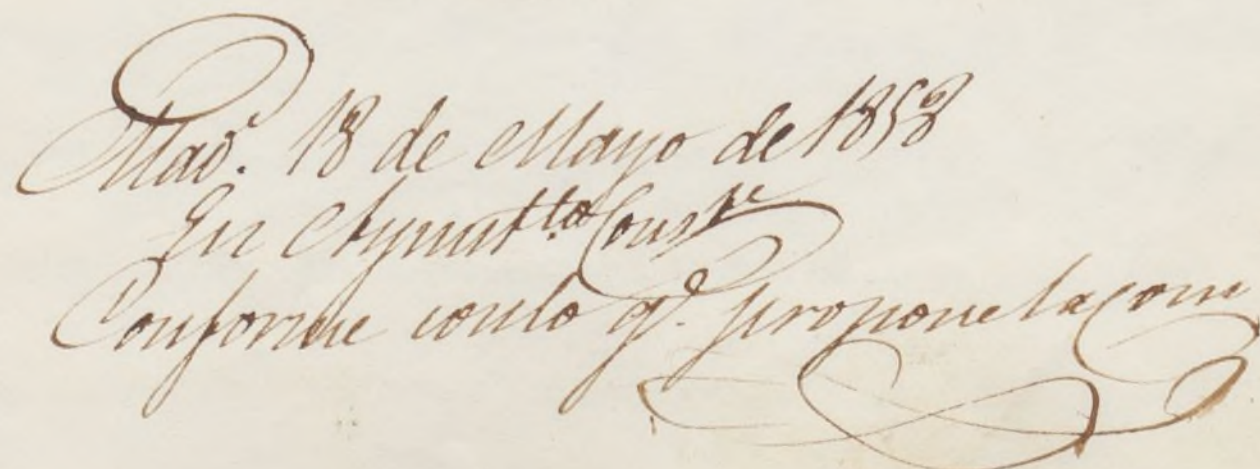 Mad.d 18 de Mayo de 1858
En Ayunt.to Const.l
Conforme con lo q.e propone la Com.n